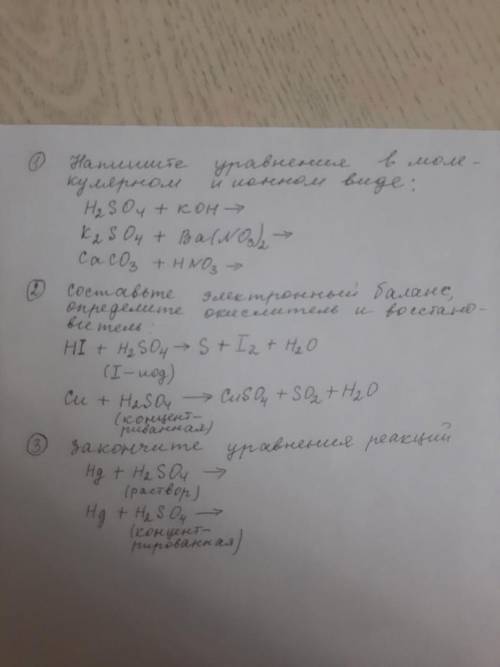 ① Напишите уравнения в моле-
кулярном и ионном виде:
H₂SO₄ + KOH →
K₂SO₄ + Ba(NO₃)₂ →
CaCO₃ + HNO₃ →
② Составьте электронный баланс,
определите окислитель и восстано-
витель:
HI + H₂SO₄ → S + I₂ + H₂O
(I – иод)
Cu + H₂SO₄ → CuSO₄ + SO₂ + H₂O
(концент-
рированная)
③ Закончите уравнения реакций
Hg + H₂SO₄ →
(раствор)
Hg + H₂SO₄ →
(концент-
рированная)